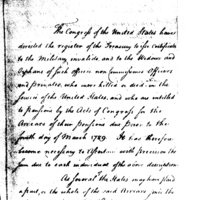 The Congress of the United States have
directed the register of the Treasury to issue Certificates
to the Military invalids, and to the Widows and
Orphans of such officers non Commissioned Officers
and privates, who were killed or died in the
Service of the United States, and who are entitled
to pensions by the Acts of Congress for the
Arrears of their pensions due prior to the
fourth day of March 1789. It has therefore
become necessary to with precision the
sum due to each individual of the above description
As several States may have paid
a part, or the whole of the said Arrears